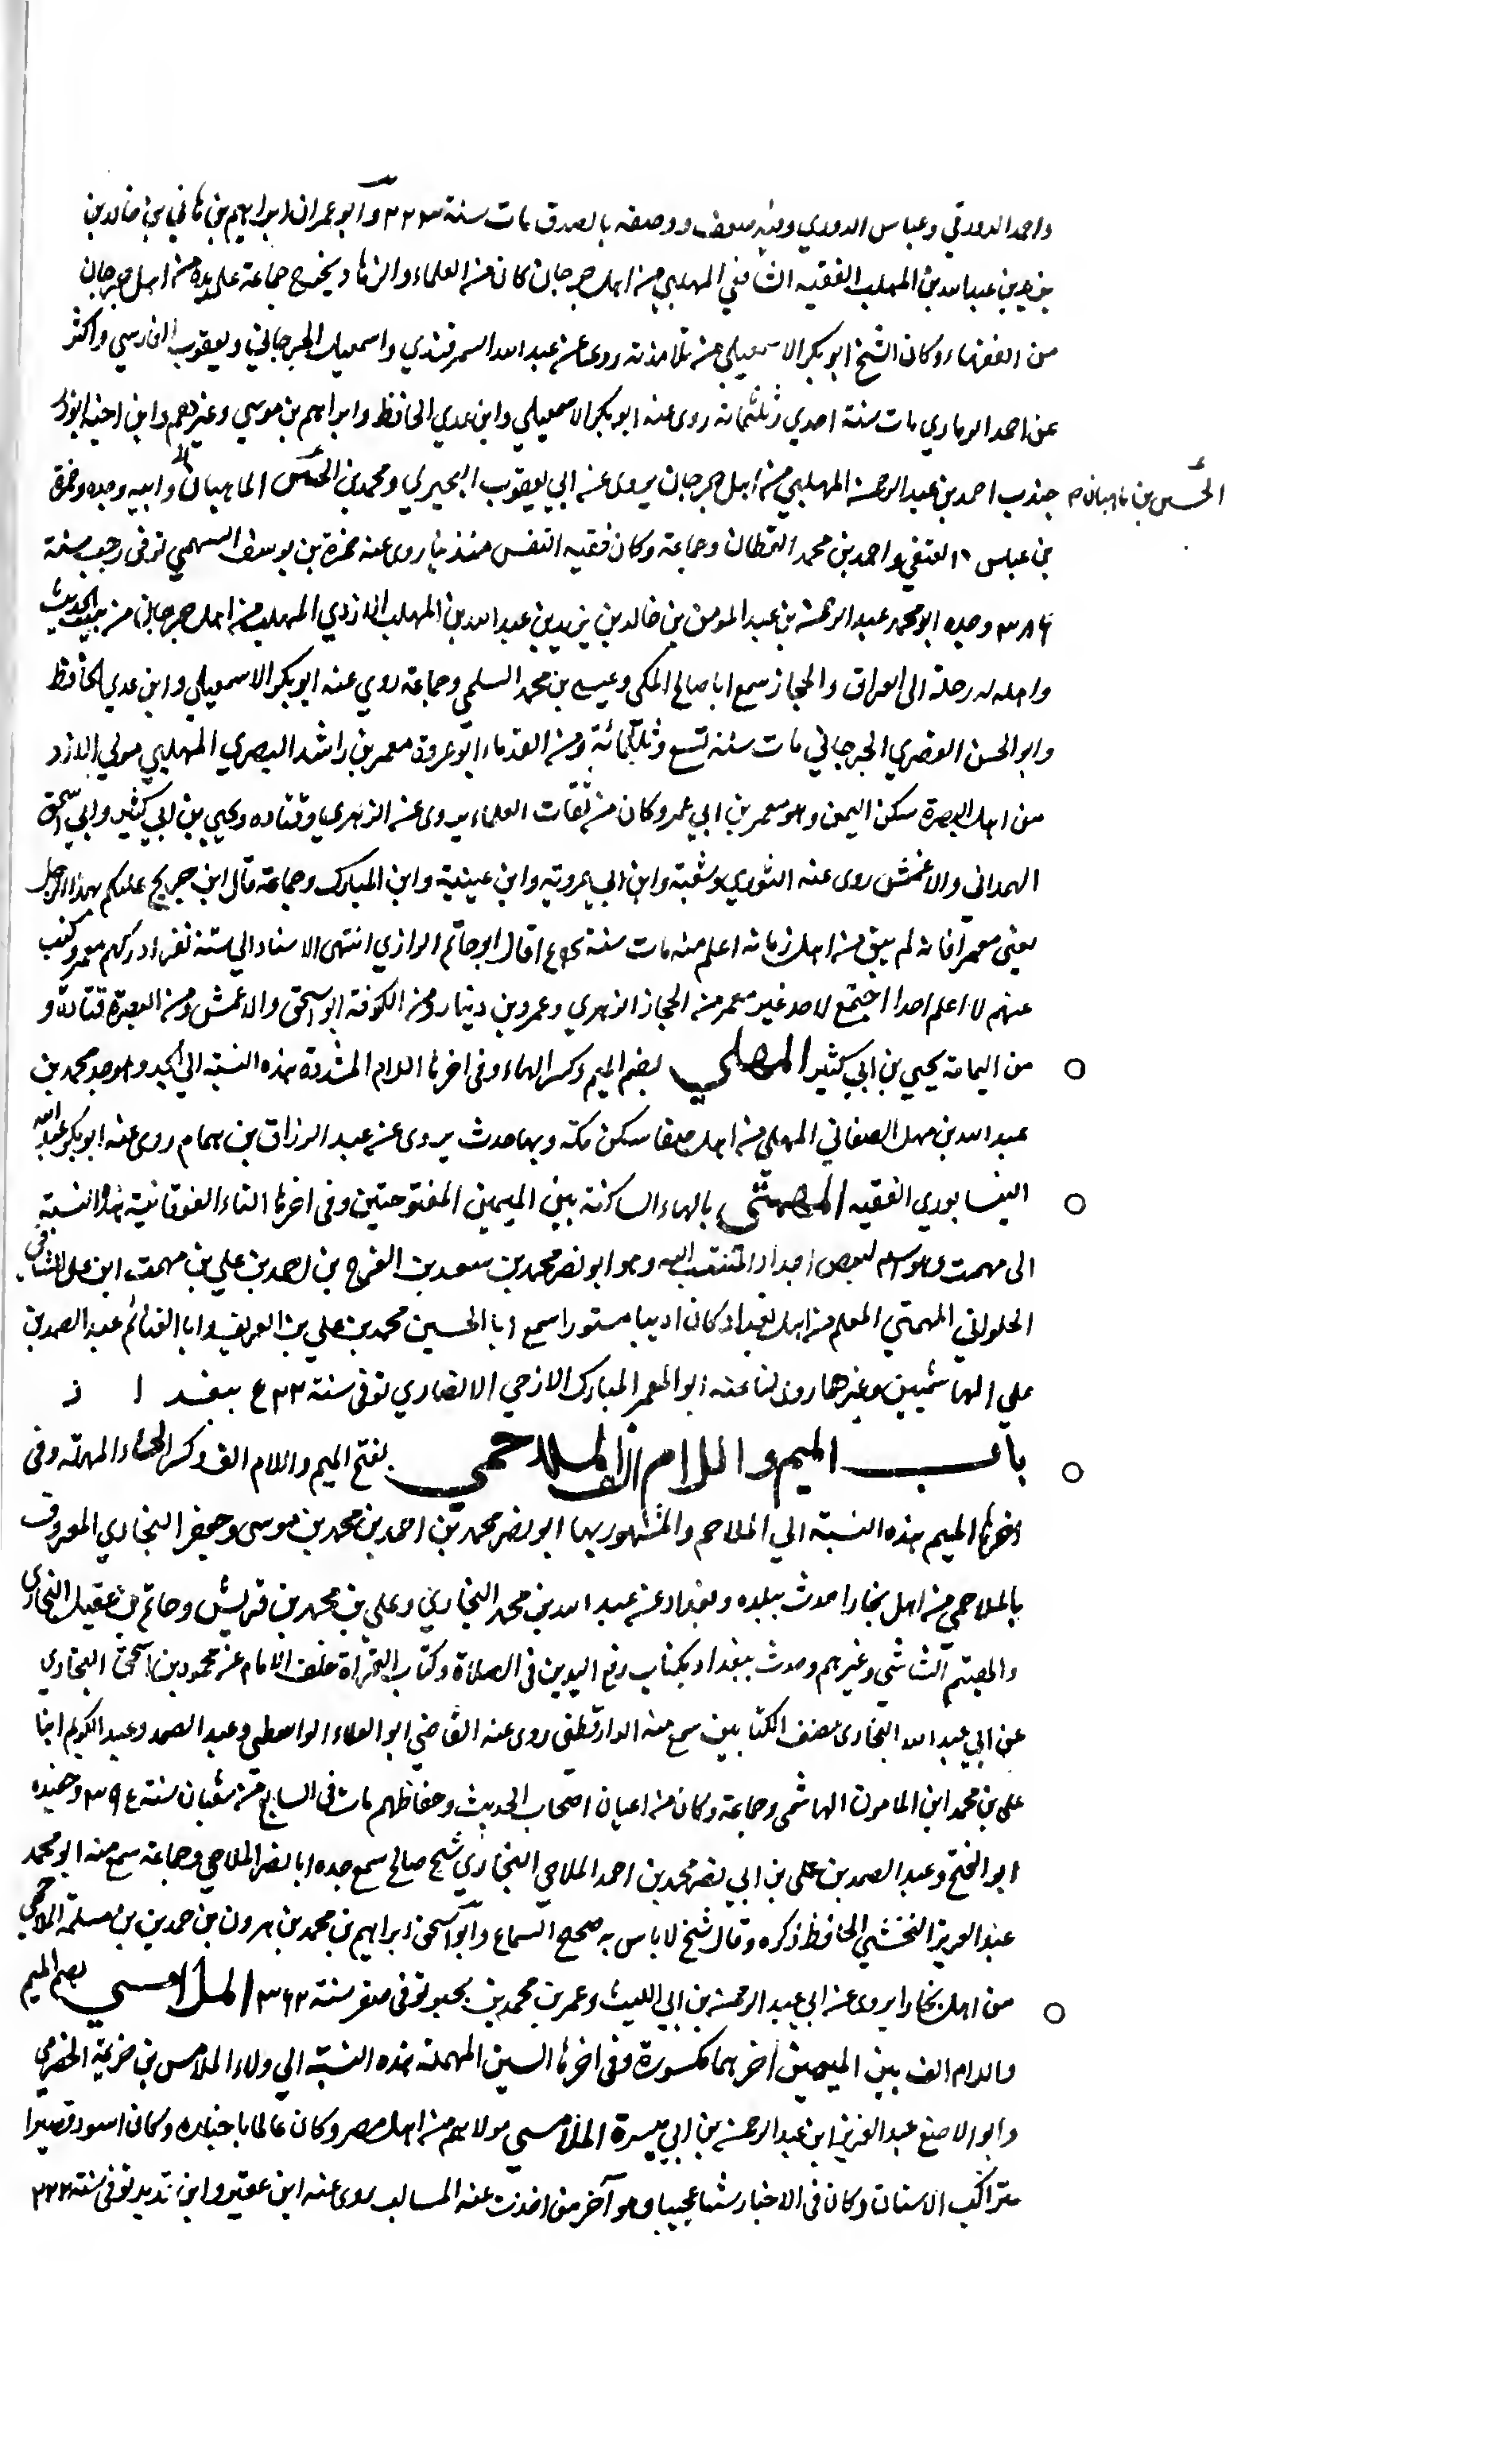 واحمد الدورقي وعباس الدوري وفيه ضعف ووصفه بالصدق مات سنة ٢٢٣ وابو عمران ابراهيم بن هاني بن خالد بن
يزيد بن عبد الله بن المهلب الفقيه الشافعي المهلبي من اهل جرجان كان من العلماء والزهاد يخرج جماعة على يده من اهل جرجان
من الفقهاء وكان الشيخ ابو بكر الاسمعيلي من تلامذته روى عن عبد الله السمرقندي واسمعيل الجرجاني ويعقوب الفارسي واكثر
عن احمد الرمادي مات سنة احدي وثلثمائة روى عنه ابو بكر الاسمعيلي وابن عدي الحافظ وابراهيم بن موسي وغيرهم وابن اخيه ابو ذر
الحسن بن ماهيان ص
جندب احمد بن عبد الرحمن المهلبي من اهل جرجان يروى عن ابي يعقوب البحيري ومحمد بن الحسن الماهياني وابيه وجده وحمزة
بن عباس العتقي واحمد بن محمد القطان وجماعة وكان فقيه النفس روى عنه حمزة بن يوسف السهمي توفي رجب سنة
٣٨٤ وجده ابو محمد عبد الرحمن بن عبد المومن بن خالد بن يزيد بن عبد الله بن المهلب الازدي المهلبي من اهل جرجان من بيت الحديث
واهله له رحلة الى العراق والحجاز سمع ابا صالح المكي وعيسى بن محمد السلمي وجماعة روي عنه ابو بكر الاسمعيلي وابن عدي الحافظ
وابو الحسن القصري الجرجاني مات سنة تسع وثلثمائة ومن القدماء ابو عروة معمر بن راشد البصري المهلبي مولي الازد
من اهل البصرة سكن اليمن وهو معمر بن ابي عمرو كان من ثقات العلماء يروى عن الزهري وقتاده ويحيي بن ابي كثير وابي اسحق
الهمداني والاعمش روى عنه الثوري وشعبة وابن ابي عروبة وابن عيينة وابن المبارك وجماعة قال ابن جريج عليكم بهذا الرجل
يعني معمرا فانه لم يبق من اهل زمانه اعلم منه مات سنة قال ابو حاتم الرازي انتهى الاسناد الي ستة نفر ادركهم معمر وكتب
عنهم لا اعلم احدا اجتمع لاحد غير معمر من الحجاز الزهري وعمرو بن دينار ومن الكوفة ابو اسحق والاعمش ومن البصرة قتادة و
من اليمامة يحيي بن ابي كثير المهلي بضم الميم وكسر الهاء وفى اخرها اللام المشددة هذه النسبة الى الجد وهو جد محمد بن
عبد الله بن مهل الصنعاني المهلي من اهل صنعا سكن مكة وبها حدث يروى عن عبد الرزاق بن همام روى عنه ابو بكر عبد الله
النيسابوري الفقيه المهمتي بالهاء الساكنة بين الميمين المفتوحتين وفى اخرها التاء الفوقانية هذه النسبة
الى مهمت وهو اسم لبعض اجداد المنتسب اليه وهو ابو نصر محمد بن سعد بن الفرج بن احمد بن علي بن مهمت ابن على الشيباني
الحلواني المهمتي المعلم من اهل بغداد كان اديبا مستورا سمع ابا الحسين محمد بن علي بن الغريق وابا الغنائم عبد الصمد بن
على الهاشميين وغيرهما روى لنا عنه ابو المعمر المبارك الازجي الانصاري توفى سنة ببغداد
باب الميم واللام الف الملاحمي بفتح الميم واللام الف وكسر الحاء المهملة وفى
اخرها الميم هذه النسبة الي الملاحم والمشهور بها ابو نصر محمد بن احمد بن محمد بن موسى وجعفر البخاري المعروف
بالملاحمي من اهل بخارا حدث ببلده وببغداد عن عبد الله بن محمد البخاري وعلي بن محمد بن قريش وحاتم بن عقيل البخارى
والهيثم الشاشي وغيرهم وحدث ببغداد بكتاب رفع اليدين فى الصلاة وكتاب القراة خلف الامام عن محمود بن اسحق البخاري
عن ابي عبد الله البخارى مصنف الكتابين سمع منه الدارقطني روى عنه القاضي ابو العلاء الواسطي وعبد الصمد وعبد الكريم ابنا
على بن محمد ابن المامون الهاشمي وجماعة وكان من اعيان اصحاب الحديث وحفاظهم مات فى السابع من شعبان سنة ٣٩٤ وحفيده
ابو الفتح وعبد الصمد بن على بن ابي نصر محمد بن احمد الملاحمي البخاري شيخ صالح سمع جده ابا نصر الملاحمي وجماعة سمع منه ابو محمد
عبد العزيز النخشبي الحافظ ذكره وقال شيخ لا باس به صحيح السماع وابو اسحق ابراهيم بن محمد بن هرون بن حمدين بن مسلمة الملاحمي
من اهل بخارا يروى عن ابي عبد الرحمن بن ابي الليث وعمر بن محمد بن بجير توفى صفر سنة ٣٦٣ الملامسي بضم الميم
واللام الف بين الميمين اخرهما مكسورة وفى اخرها السين المهملة هذه النسبة الي ولاء الملامس بن خزيمة الحضرمي
وابو الاصبغ عبد العزيز ابن عبد الرحمن بن ابي ميسرة الملامسي مولاهم من اهل مصر وكان عالما باخباره وكان اسود قصيرا
متراكب الاسنان وكان فى الاخبار شيا عجيبا وهو آخر من اخذت عنه المسالب روى عنه ابن عفير وابن قديد توفى سنة ٢٢٣